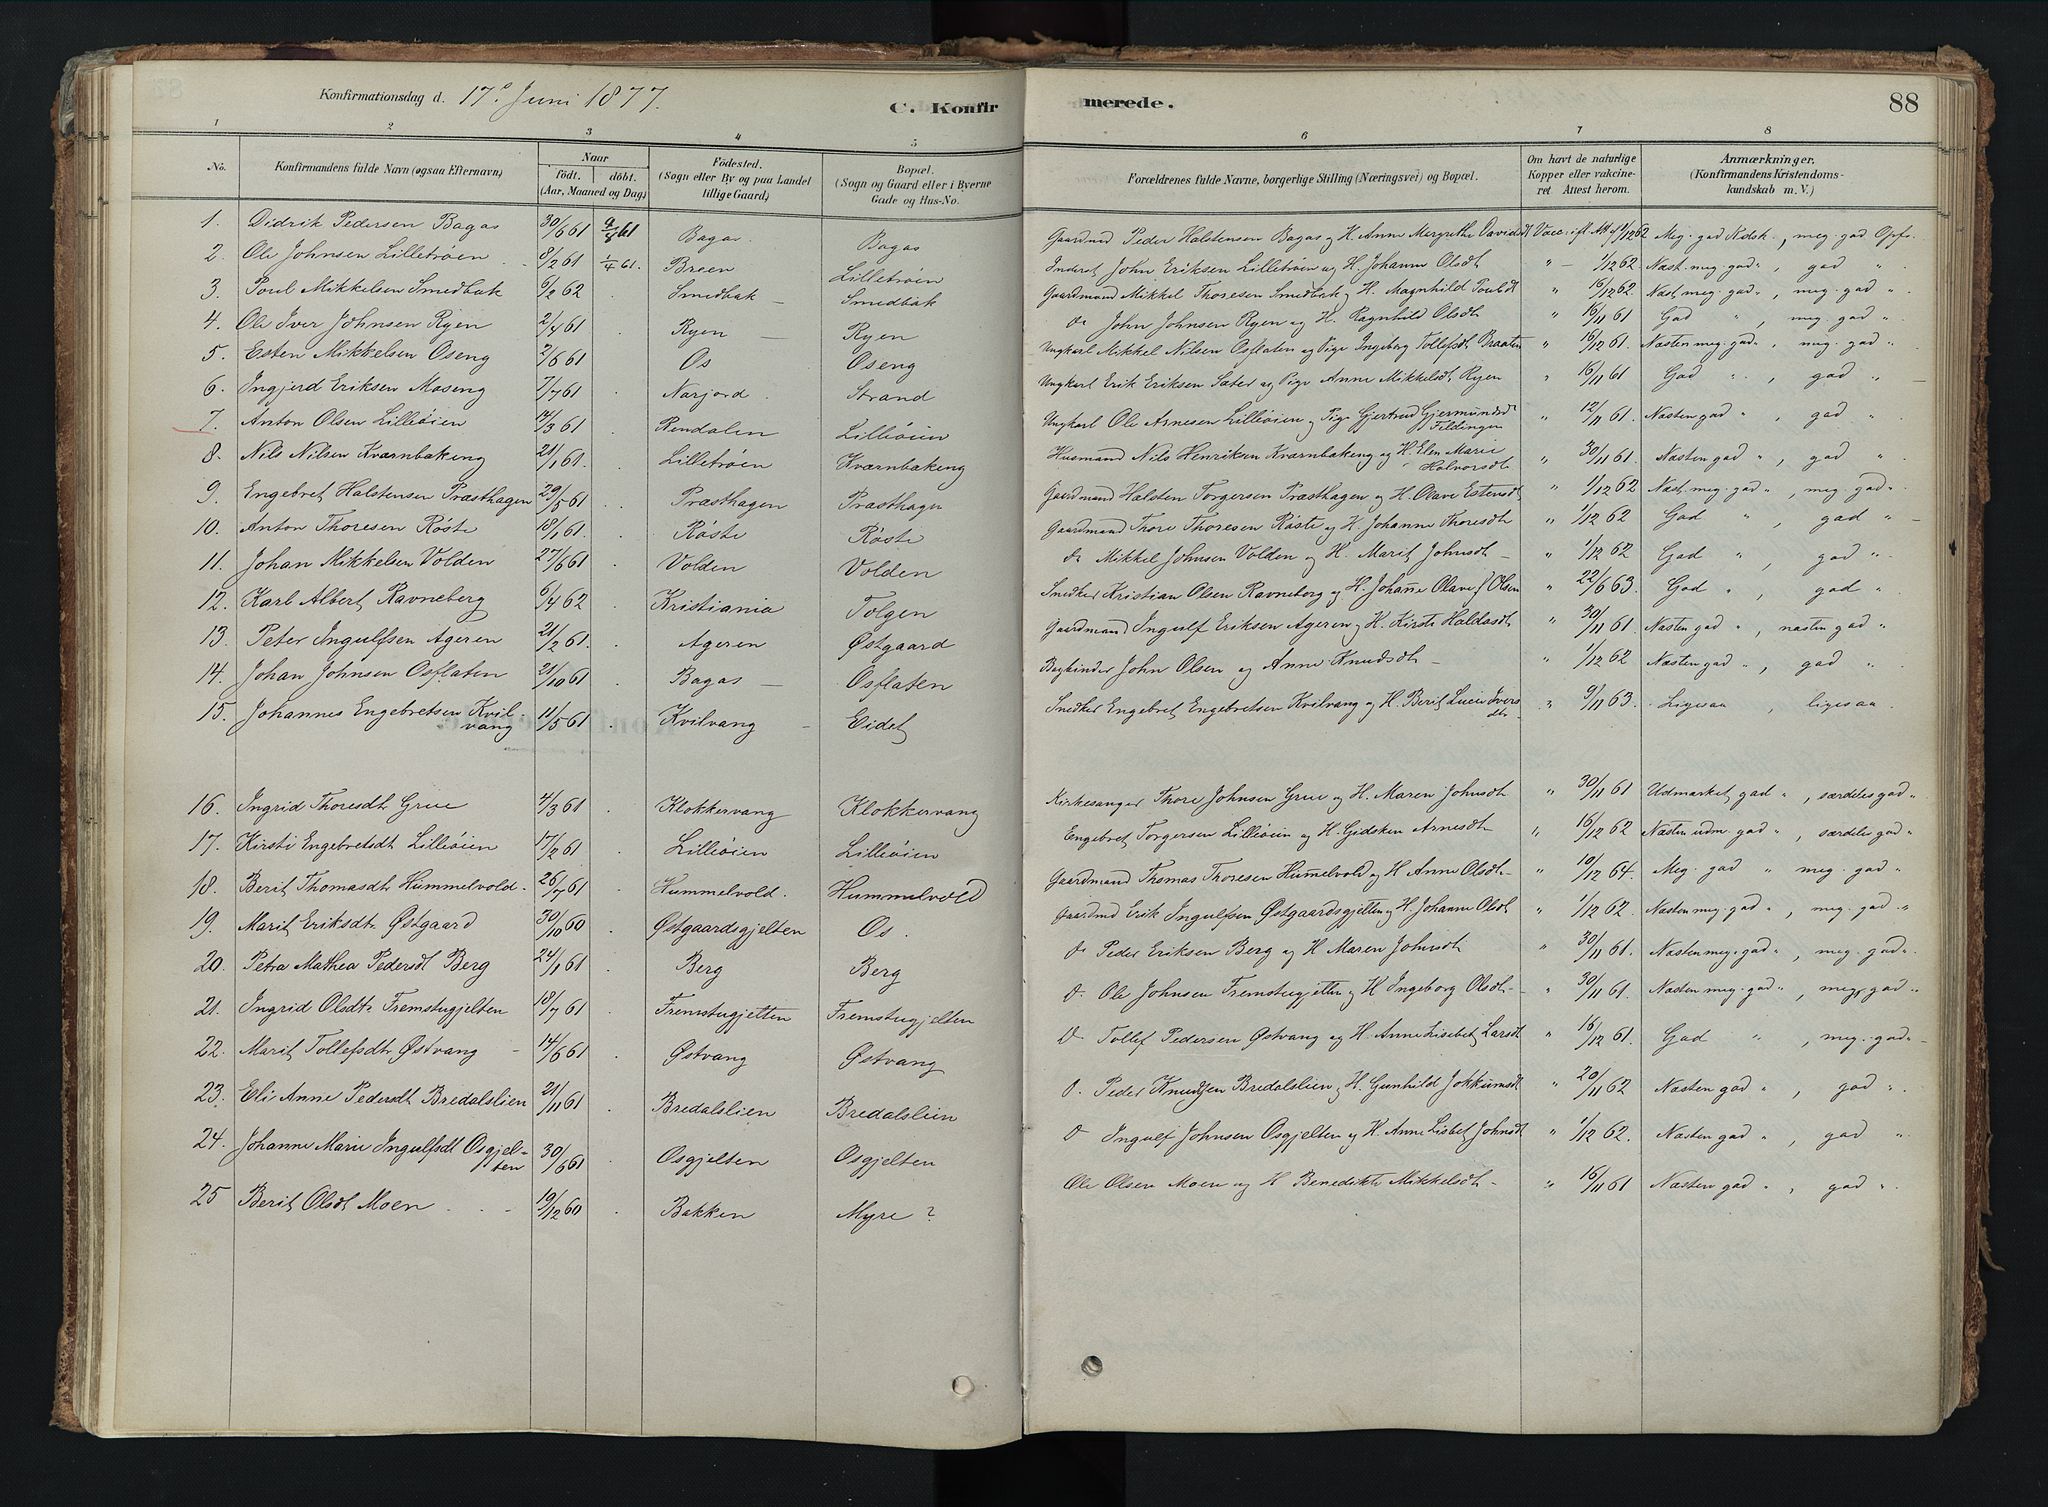 Konfirmationsdag d. 17de Juni 1877.
C. Konfirmerede.
88
1 2 3 4 5 6 7 8
No. Konfirmandens fulde Navn (ogsaa Efternavn) Naar födt. döbt. (Aar, Maaned og Dag) Födested. (Sogn eller By og paa Landet tillige Gaard) Bopæl. (Sogn og Gaard eller i Byerne Gade og Hus-No. Forældrenes fulde Navne, borgerlige Stilling (Næringsvei) og Bopæl. Om havt de naturlige Kopper eller vakcineret Attest herom. Anmærkninger. (Konfirmandens Kristendomskundskab m. V.)
1. Didrik Pedersen Bagas 30/6 61 9/8 61 Bagas Bagas Gaardmd Peder Halstensen Bagas og H. Anne Mergrethe Davidsdt Vacc. ifl. Att. af 1/12 62 Meg. gad Kdsk., meg. gad Opf.
2. Ole Johnsen Lilletröen 8/2 61 1/4 61. Breen Lilletröen Inderst John Eriksen Lilletröen og H. Johanne Olsdt " — 1/12 62. Næst. meg. gad ", gad "
3. Poul Mikkelsen Smedbak 6/2 62 Smedbak Smedbak Gaardmand Mikkel Thoresen Smedbak og H. Magnhild Poulsdt " 16/12 62. Næst. meg. gad ", meg. gad "
4. Ole Iver Johnsen Ryen 2/4 61 Ryen Ryen do John Johnsen Ryen og H. Ragnhild Olsdt " 16/11 61 Gad ", meg. gad "
5. Esten Mikkelsen Oseng 2/6 61 Os Oseng Ungkarl Mikkel Nilsen Osflaten og Pige Ingeborg Tollefsdt Braaten " 16/12 61. Næsten meg. gad ", meg. gad "
6. Ingjerd Eriksen Moseng 7/7 61 Narjord Strand Ungkarl Erik Eriksen Sæter og Pige Anne Mikkelsdt Ryen " 16/11 61 Gad ", gad "
7. Anton Olsen Lilleöien 14/3 61 Rendalen Lilleöien Ungkarl Ole Arnesen Lilleöien og Pige Gjertrud Gjermundsd Fildingen " 12/11 61. Næsten gad ", gad "
8. Nils Nilsen Kværnbakeng 21/1 61. Lilletröen Kværnbakeng Husmand Nils Henriksen Kværnbakeng og H. Elen Marie Halvorsdt " 30/11 61. Næsten gad ", gad "
9. Engebret Halstensen Præsthagen 29/5 61 Præsthagen Præsthagen Gaardmand Halsten Torgersen Præsthagen og H. Olave Estensdt " 1/12 62 Næst. meg. gad ", meg. gad "
10. Anton Thoresen Röste 18/1 61. Röste Röste Gaardmand Thore Thoresen Röste og H. Johanne Thoresdt " 1/12 62 Gad ", gad "
11. Johan Mikkelsen Volden 27/6 61 Volden Volden do Mikkel Johnsen Volden og H. Marit Johnsdt — " 1/12 62 Gad ", gad "
12. Karl Albert Ravneberg 6/4 62 Kristiania Tolgen Snedker Kristian Olsen Ravneberg og H. Johanne Olave f Olsen " 22/6 63. Gad ", gad "
13. Peter Ingulfsen Ageren 21/2 61. Ageren Østgaard Gaardmand Ingulf Eriksen Ageren og H. Kirsti Haldosdt " 30/11 61. Næsten gad ", næsten gad "
14. Johan Johnsen Osflaten 21/10 61 Bagas Osflaten Bogbinder John Olsen og Anne Knudsdt — " 1/12 62 Næsten gad ", gad "
15. Johannes Engebretsen Kvilvang 11/5 61 Kvilvang Eidet Snedker Engebret Engebretsen Kvilvang og H. Berit Lucie Iversdtr " 9/11 63. Ligesaa, ligesaa
16. Ingrid Thoresdt Grue 4/3 61 Klokkervang Klokkervang Kirkesanger Thore Johnsen Grue og H. Maren Johnsdt " 30/11 61 Udmærket gad ", særdeles gad "
17. Kirsti Engebretsdt Lilleöien 17/2 61 Lilleöien Lilleöien Engebret Torgersen Lilleöien og H. Gidsken Arnesdt — " 16/12 62 Næsten udm. gad ", særdeles gad "
18. Berit Thomasdt Hummelvold 26/7 61 Hummelvold. Hummelvold Gaardmand Thomas Thoresen Hummelvold og H Anne Olsdt — " 10/12 64. Meg. gad " meg. gad "
19. Marit Eriksdtr Østgaard 30/10 60 Østgaardsgjelten Os. Gaardmd Erik Ingulfsen Østgaardsgjelten og H. Johanne Olsdt " 1/12 62. Næsten meg. gad ", meg. gad "
20. Petra Mathea Pedersdt Berg 24/1 61 Berg Berg Do Peder Eriksen Berg og H Maren Johnsdt " 30/11 61. Næsten meg. gad ", meg. gad "
21. Ingrid Olsdtr Fremstugjelten 18/7 61 Fremstugjelten Fremstugjelten Do Ole Johnsen Fremstugjelten og H Ingeborg Olsdt — " 30/11 61. Næsten meg. gad ", meg. gad "
22. Marit Tollefsdtr Østvang 14/6 61 Østvang Østvang Do Tollef Pedersen Østvang og H. Anne Lisebet Larsdt " 16/12 61. Gad ", meg. gad "
23. Eli Anne Pedersdt Bredalslien 21/11 61 Bredalslien Bredalslien Do Peder Knudsen Bredalslien og H. Gunhild Jokkumsdt " 20/11 62 Næsten gad ", gad "
24. Johanne Marie Ingulfsdt Osgjelten 30/6 61 Osgjelten Osgjelten Do Ingulf Johnsen Osgjelten og H. Anne Lisbet Johnsdt " 1/12 62. Næsten gad ", gad "
25 Berit Olsdt Moen 19/12 60 Bakken Myre ? Ole Olsen Moen og H Benedikte Mikkelsdt — " 16/11 61 Næsten gad ", gad "